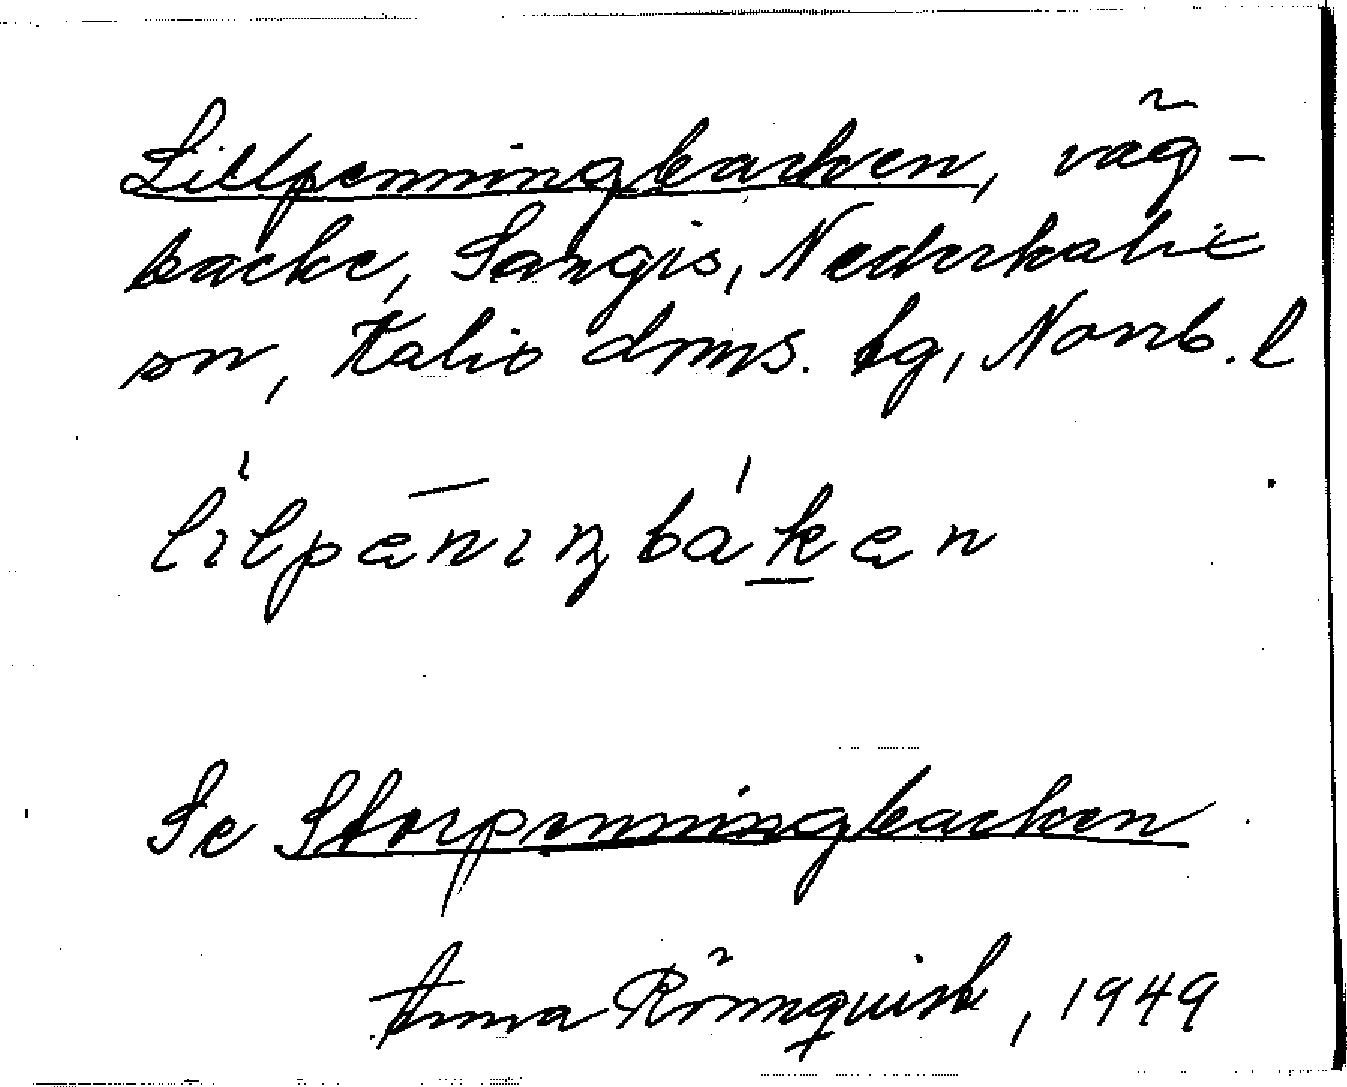 Lillpenningbacken, väg-
backe, Sangis, Nederkalix
sn, Kalix dms. tg, Norrb. l
Se Storpenningbacken
Anna Rönnquist, 1949